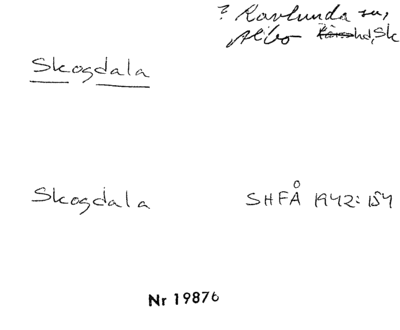 ? Ravlunda sn,
Albo hd, Sk
Skogdala
Skogdala SHFÅ 1942:154
Nr 19876